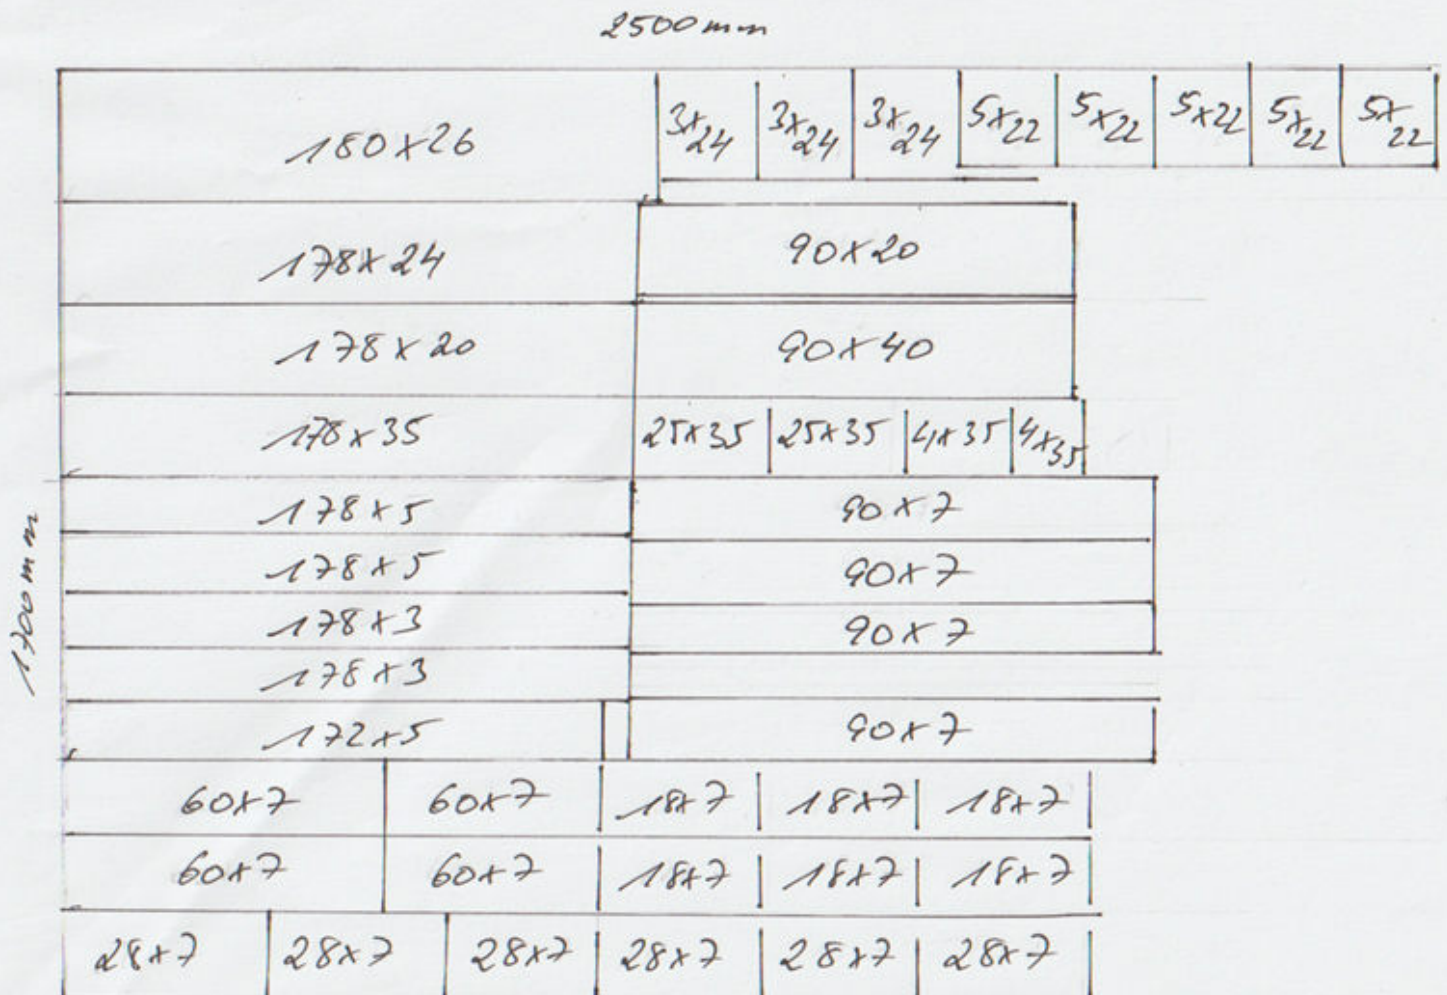 2500mm
180x26 3x24 3x24 3x24 5x22 5x22 5x22 5x22 5x22
178x24 90x20
178x20 90x40
178x35 25x35 25x35 4x35 4x35
178x5 90x7
178x5 90x7
178x3 90x7
178x3
1700mm
172x5 90x7
60x7 60x7 18x7 18x7 18x7
60x7 60x7 18x7 18x7 18x7
28x7 28x7 28x7 28x7 28x7 28x7